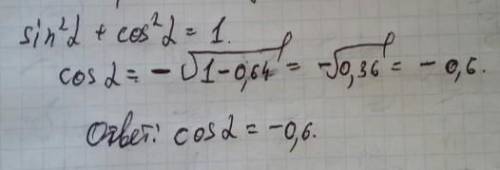 sin²α + cos²α = 1.
cos α = -√(1-0,64) = -√0,36 = - 0,6.
Ответ: cos α = -0,6.